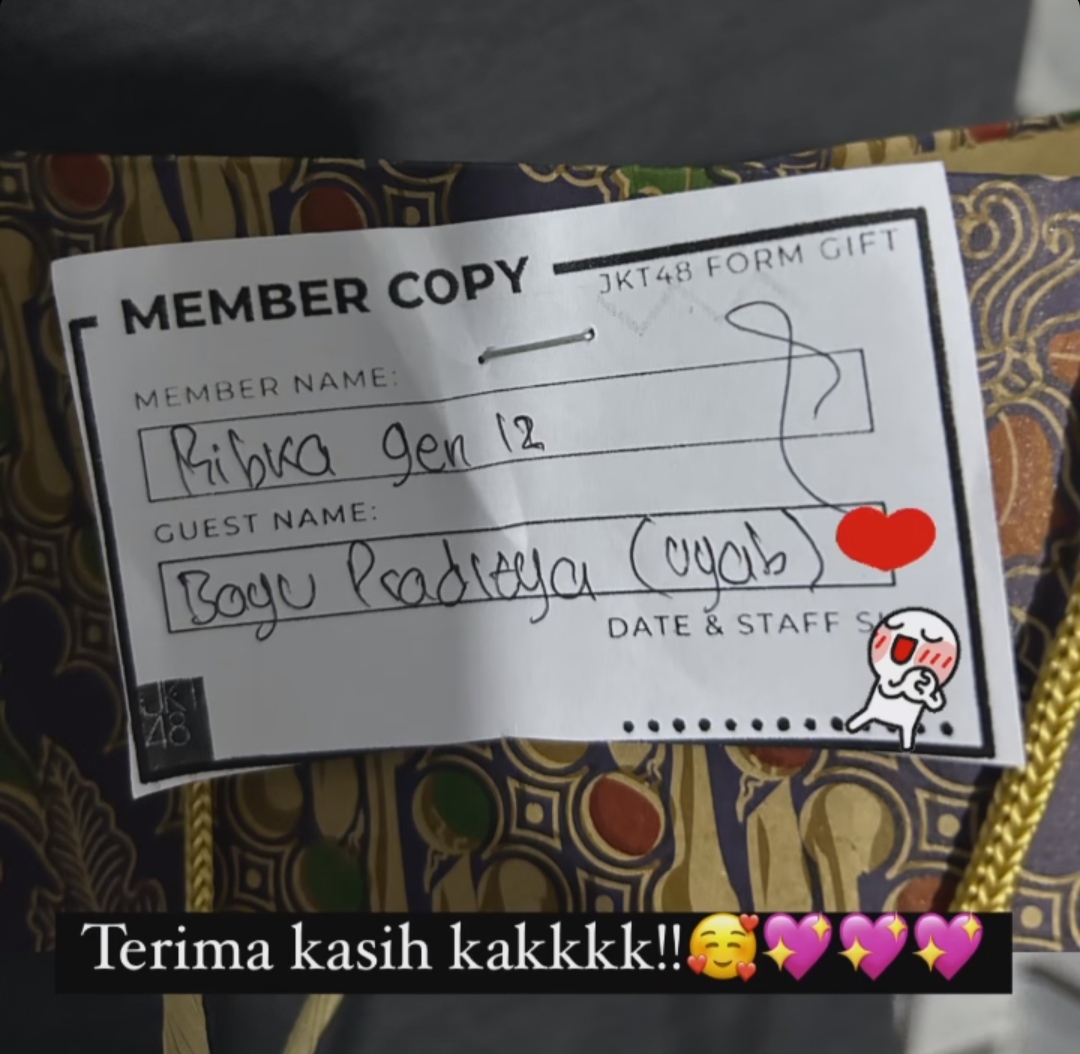 MEMBER COPY
JKT48 FORM GIFT
MEMBER NAME:
Ribka gen 12
GUEST NAME:
Bagu Praditya (uyab)
DATE & STAFF
JKT
48
Terima kasih kakkkk!!🥰💖💖💖